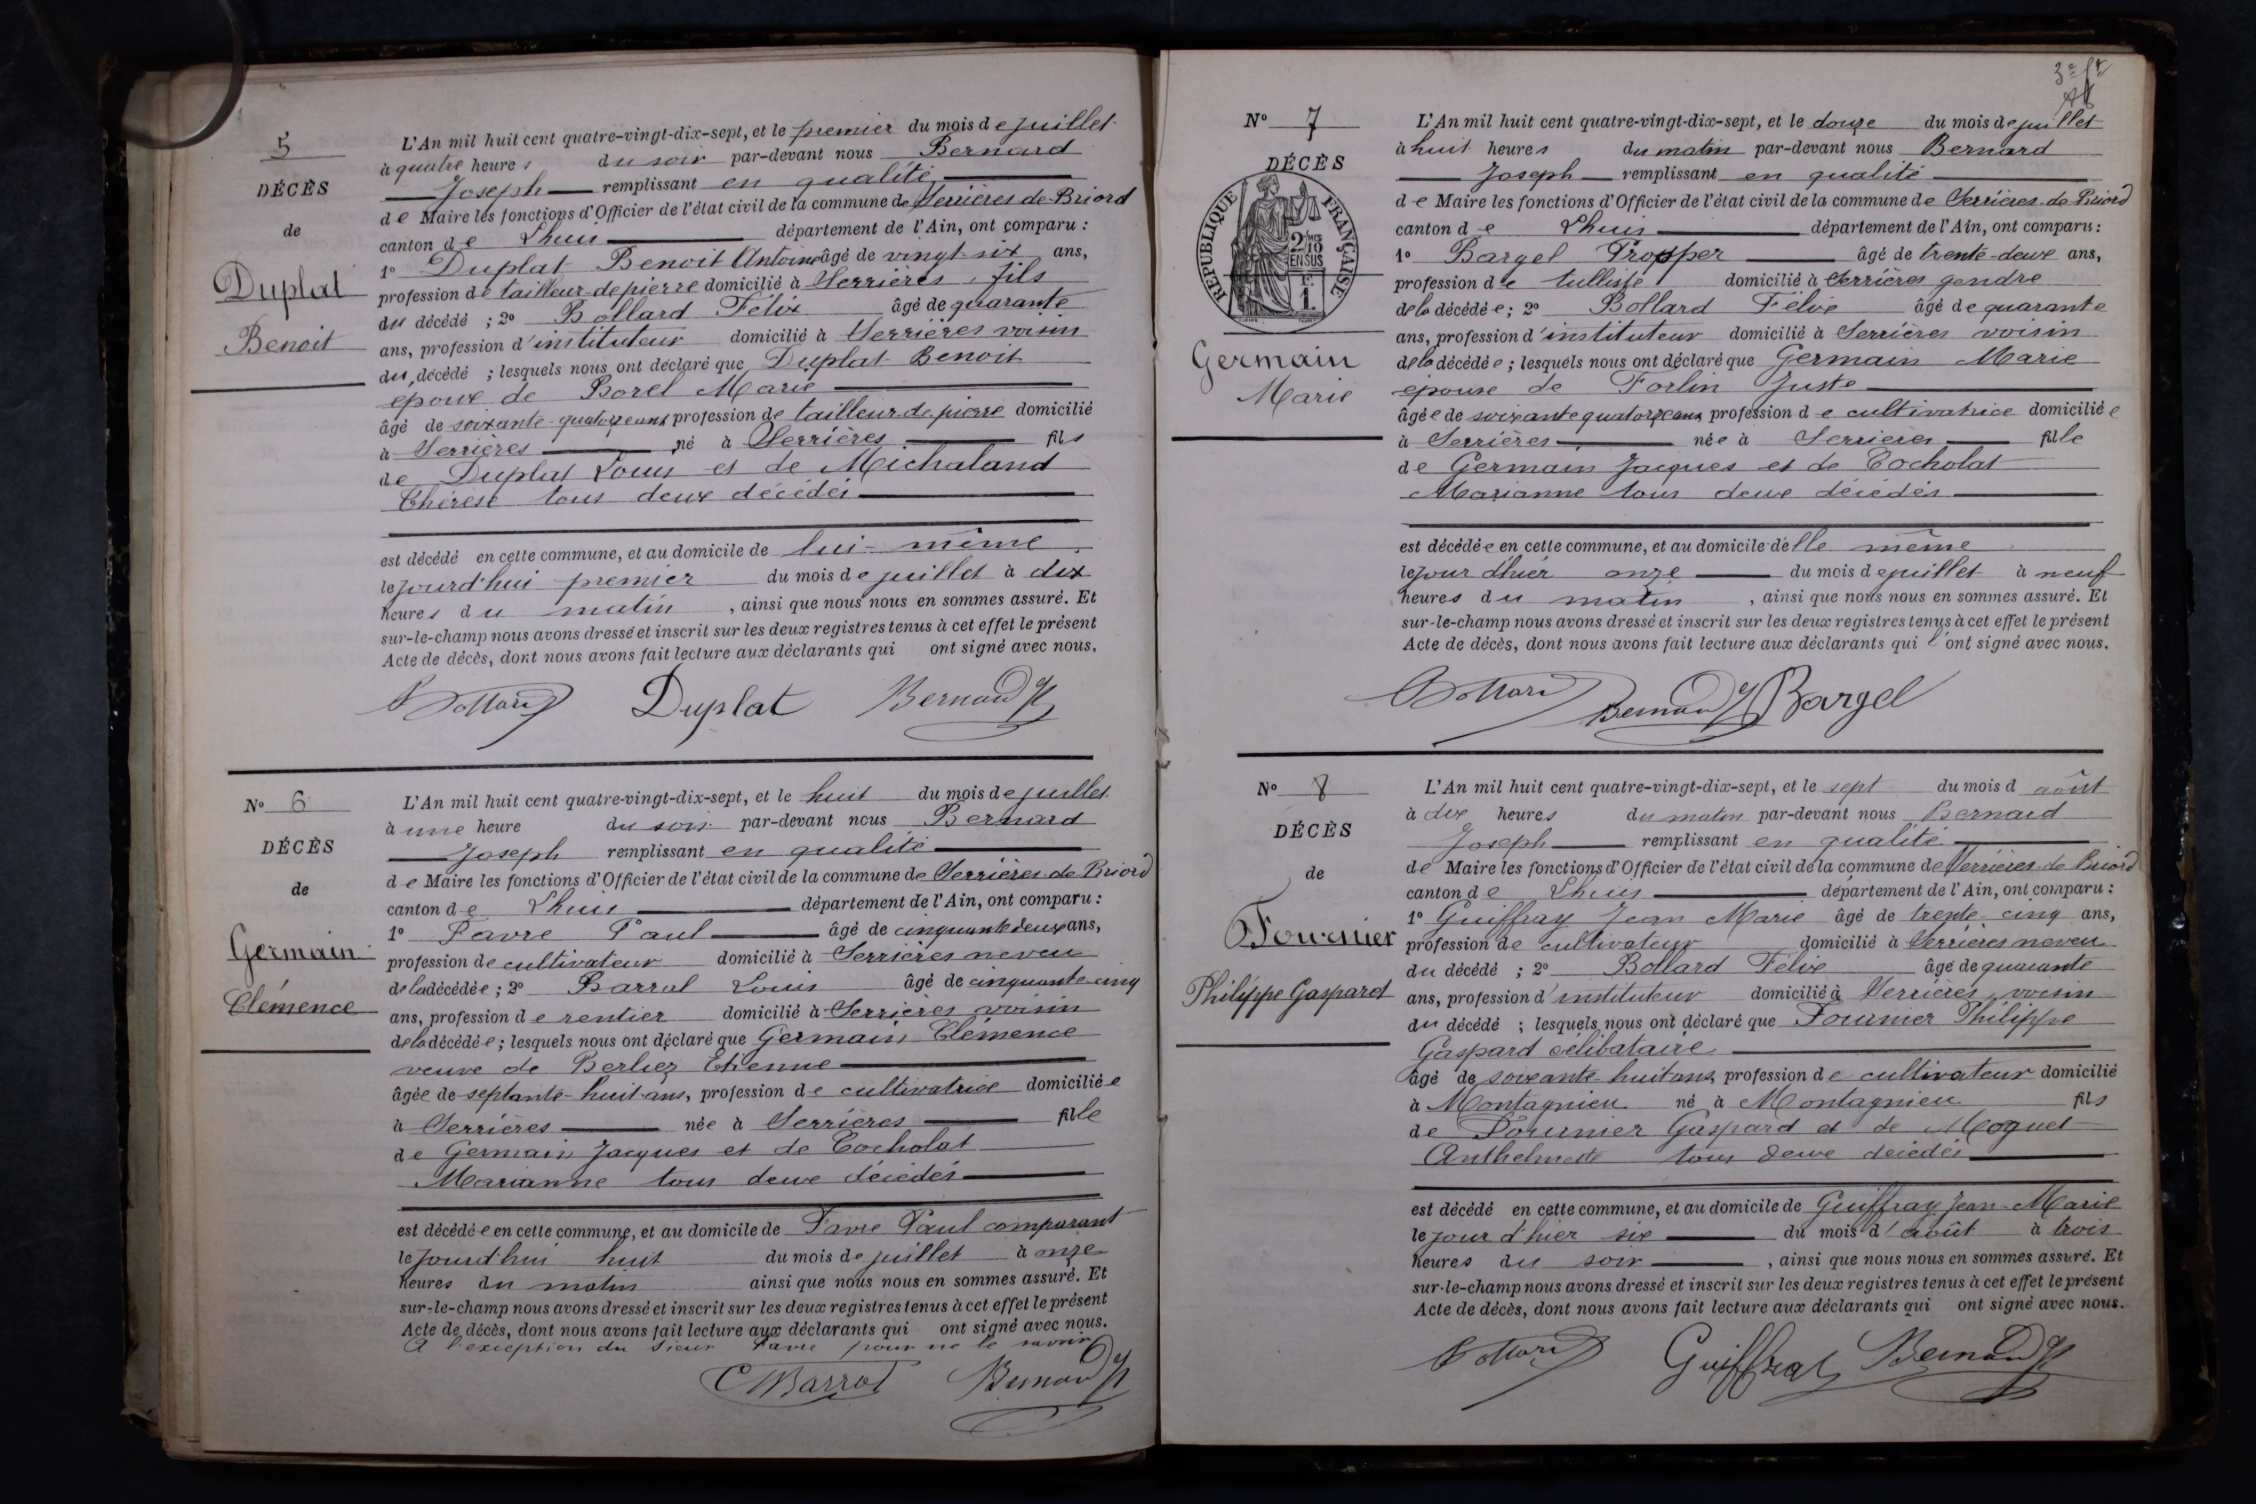 5
DÉCÈS
de
Duplat
Benoit
L'An mil huit cent quatre-vingt-dix-sept, et le premier du mois de juillet
à quatre heures du soir par-devant nous Bernard
Joseph remplissant en qualité
de Maire les fonctions d'Officier de l'état civil de la commune de Serrières-de-Briord
canton de Lhuis département de l'Ain, ont comparu :
1° Duplat Benoit Antoine âgé de vingt-six ans,
profession de tailleur de pierre domicilié à Serrières fils
du décédé ; 2° Bollard Félix âgé de quarante
ans, profession d'instituteur domicilié à Serrières voisin
du décédé ; lesquels nous ont déclaré que Duplat Benoit
époux de Borel Marie
âgé de soixante-quatorze ans profession de tailleur de pierre domicilié
à Serrières né à Serrières fils
de Duplat Louis et de Michaland
Thérèse tous deux décédés
est décédé en cette commune, et au domicile de lui-même
le jourd'hui premier du mois de juillet à dix
heures du matin, ainsi que nous nous en sommes assuré. Et
sur-le-champ nous avons dressé et inscrit sur les deux registres tenus à cet effet le présent
Acte de décès, dont nous avons fait lecture aux déclarants qui ont signé avec nous.
Bollard Duplat Bernard J
N° 6
DÉCÈS
de
Germain
Clémence
L'An mil huit cent quatre-vingt-dix-sept, et le huit du mois de juillet
à une heure du soir par-devant nous Bernard
Joseph remplissant en qualité
de Maire les fonctions d'Officier de l'état civil de la commune de Serrières-de-Briord
canton de Lhuis département de l'Ain, ont comparu :
1° Favre Paul âgé de cinquante deux ans,
profession de cultivateur domicilié à Serrières neveu
de la décédée ; 2° Barral Louis âgé de cinquante-cinq
ans, profession de rentier domicilié à Serrières voisin
de la décédée ; lesquels nous ont déclaré que Germain Clémence
veuve de Berliez Etienne
âgée de septante-huit ans, profession de cultivatrice domiciliée
à Serrières née à Serrières fille
de Germain Jacques et de Cocholat
Marianne tous deux décédés
est décédée en cette commune, et au domicile de Favre Paul comparant
le jourd'hui huit du mois de juillet à onze
heures du matin ainsi que nous nous en sommes assuré. Et
sur-le-champ nous avons dressé et inscrit sur les deux registres tenus à cet effet le présent
Acte de décès, dont nous avons fait lecture aux déclarants qui ont signé avec nous.
A l'exception du sieur Favre pour ne le savoir
Barral Bernard J
3e ft
N° 7
DÉCÈS
RÉPUBLIQUE FRANÇAISE
2/10 EN SUS
F. 1.
Germain
Marie
L'An mil huit cent quatre-vingt-dix-sept, et le douze du mois de juillet
à huit heures du matin par-devant nous Bernard
Joseph remplissant en qualité
de Maire les fonctions d'Officier de l'état civil de la commune de Serrières-de-Briord
canton de Lhuis département de l'Ain, ont comparu :
1° Bargel Prosper âgé de trente-deux ans,
profession de tulliste domicilié à Serrières gendre
de la décédée ; 2° Bollard Félix âgé de quarante
ans, profession d'instituteur domicilié à Serrières voisin
de la décédée ; lesquels nous ont déclaré que Germain Marie
épouse de Forlin Juste
âgée de soixante quatorze ans, profession de cultivatrice domiciliée
à Serrières née à Serrières fille
de Germain Jacques et de Cocholat
Marianne tous deux décédés
est décédée en cette commune, et au domicile d'elle même
le jour d'hier onze du mois de juillet à neuf
heures du matin, ainsi que nous nous en sommes assuré. Et
sur-le-champ nous avons dressé et inscrit sur les deux registres tenus à cet effet le présent
Acte de décès, dont nous avons fait lecture aux déclarants qui l'ont signé avec nous.
Bollard Bernard J Bargel
N° 8
DÉCÈS
de
Fournier
Philippe Gaspard
L'An mil huit cent quatre-vingt-dix-sept, et le sept du mois d août
à dix heures du matin par-devant nous Bernard
Joseph remplissant en qualité
de Maire les fonctions d'Officier de l'état civil de la commune de Serrières-de-Briord
canton de Lhuis département de l'Ain, ont comparu :
1° Guiffray Jean Marie âgé de trente-cinq ans,
profession de cultivateur domicilié à Serrières neveu
du décédé ; 2° Bollard Félix âgé de quarante
ans, profession d'instituteur domicilié à Serrières voisin
du décédé ; lesquels nous ont déclaré que Fournier Philippe
Gaspard célibataire
âgé de soixante huit ans, profession de cultivateur domicilié
à Montagnieu né à Montagnieu fils
de Fournier Gaspard et de Moquet
Anthelmette tous deux décédés
est décédé en cette commune, et au domicile de Guiffray Jean-Marie
le jour d'hier six du mois d'août à trois
heures du soir, ainsi que nous nous en sommes assuré. Et
sur-le-champ nous avons dressé et inscrit sur les deux registres tenus à cet effet le présent
Acte de décès, dont nous avons fait lecture aux déclarants qui ont signé avec nous.
Bollard Guiffray Bernard J